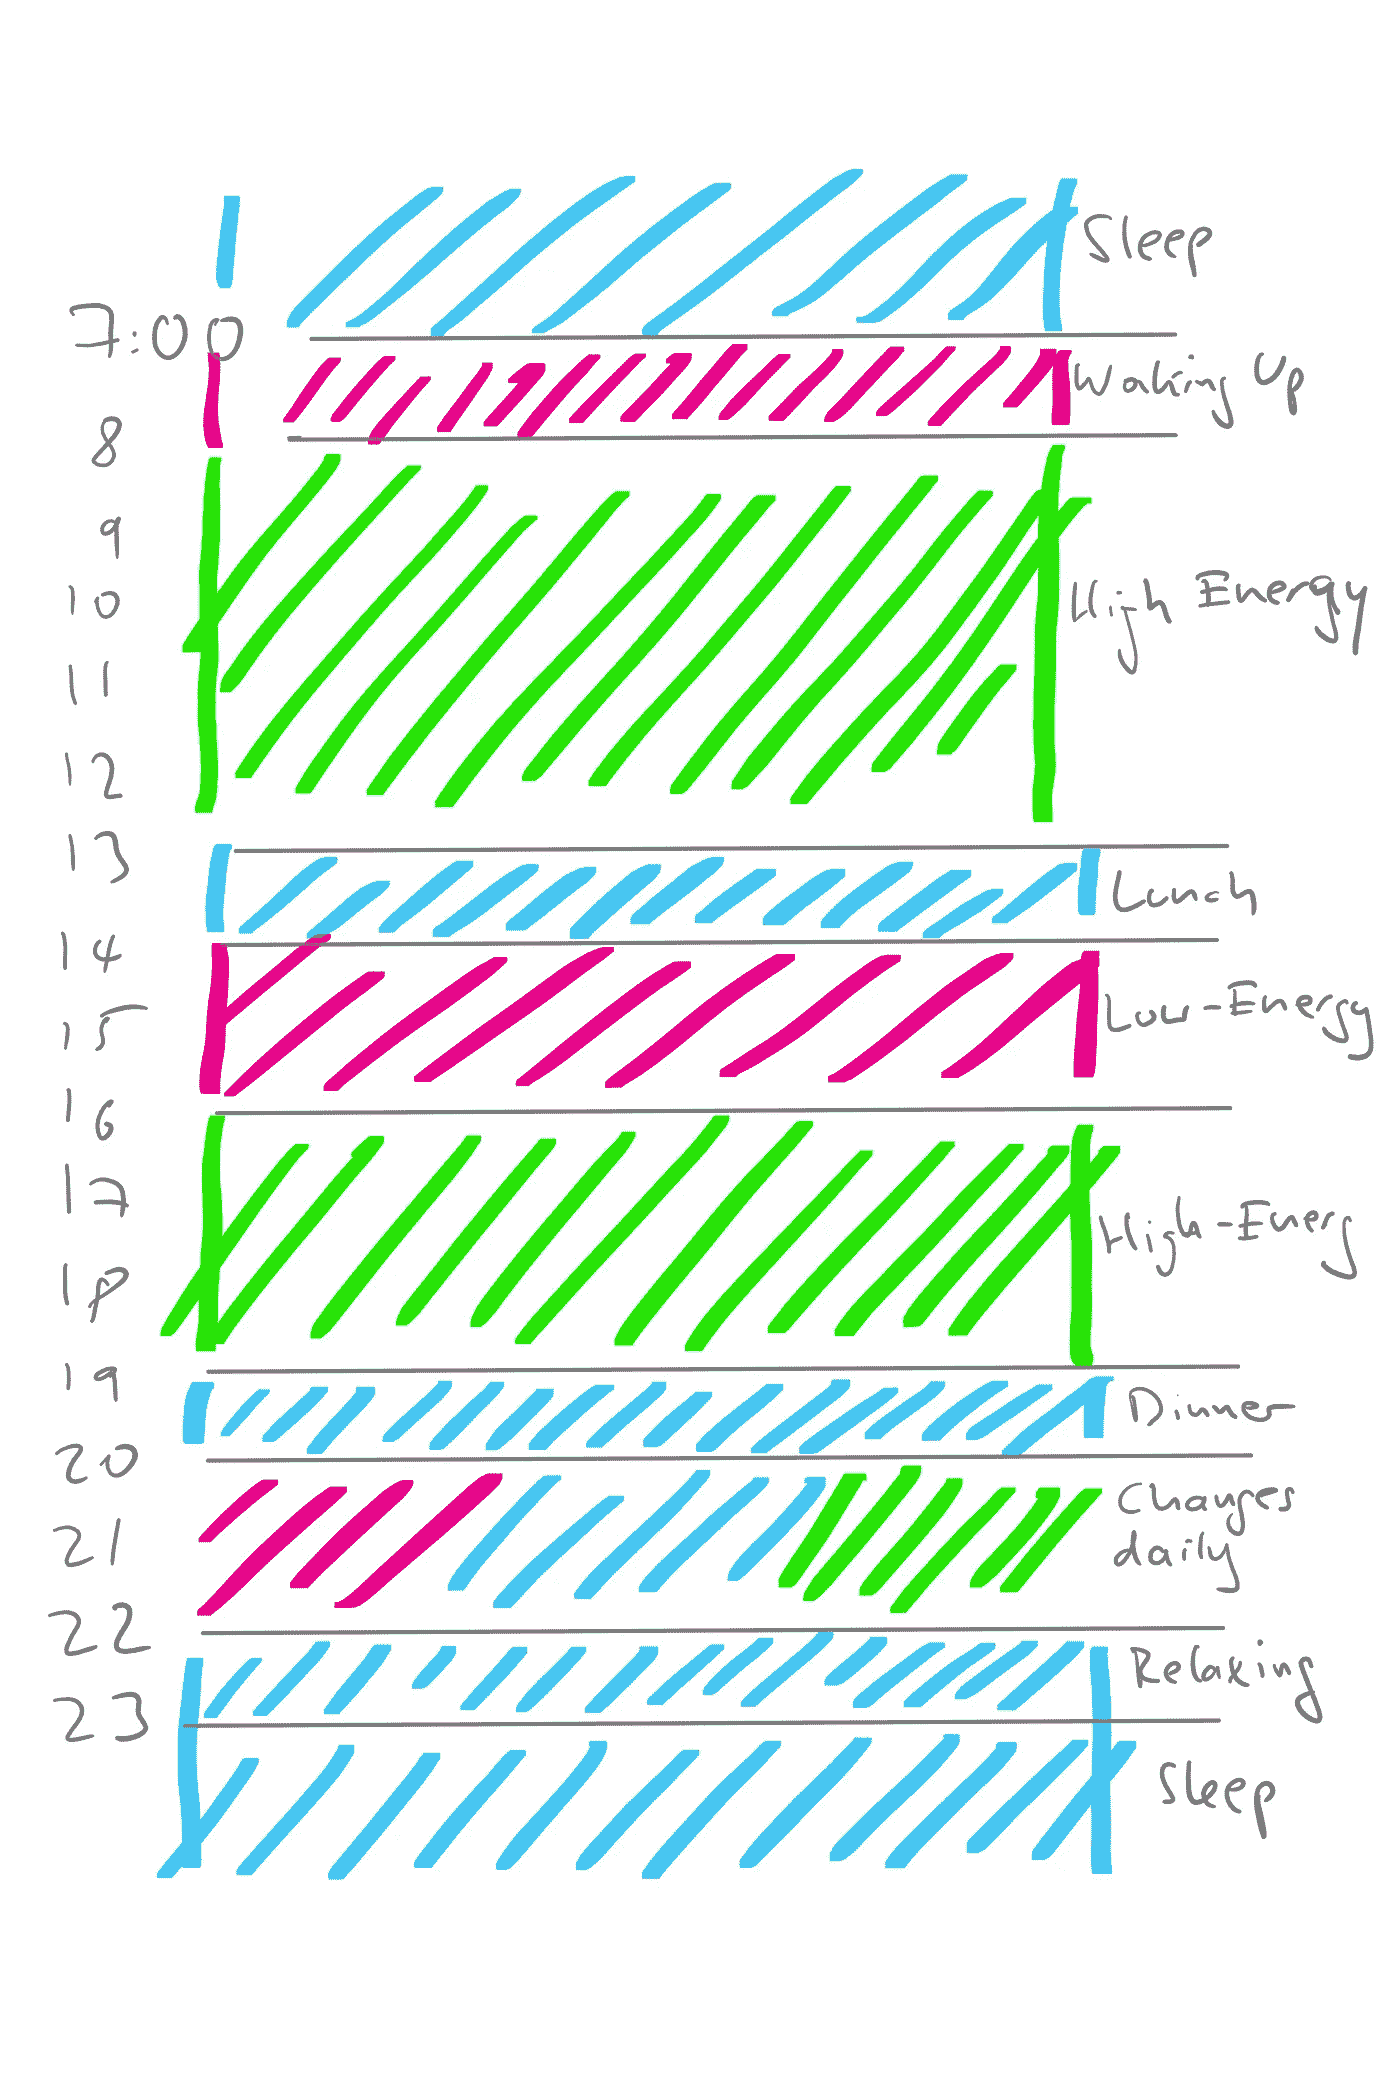 Sleep
7:00
Waking Up
8
9
10
High Energy
11
12
13
Lunch
14
Low-Energy
15
16
17
High-Energ
18
19
Dinner
20
Changes
daily
21
22
Relaxing
23
Sleep